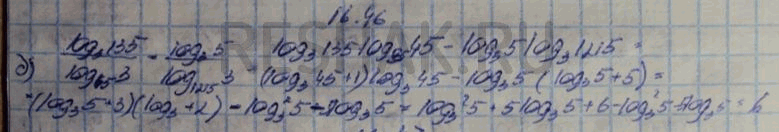 16.46
б) log₃135/log₆₅3 - log₃5/log₁₂₁₅3 log₃135 log₃45 - log₃5 log₃1215 =
= (log₃45+1) log₃45 - log₃5 (log₃5+5) =
=(log₃5+3)(log₃+2) - log₃²5 - 5log₃5 = log₃²5 + 5log₃5+6-log₃²5-5log₃5 = 6